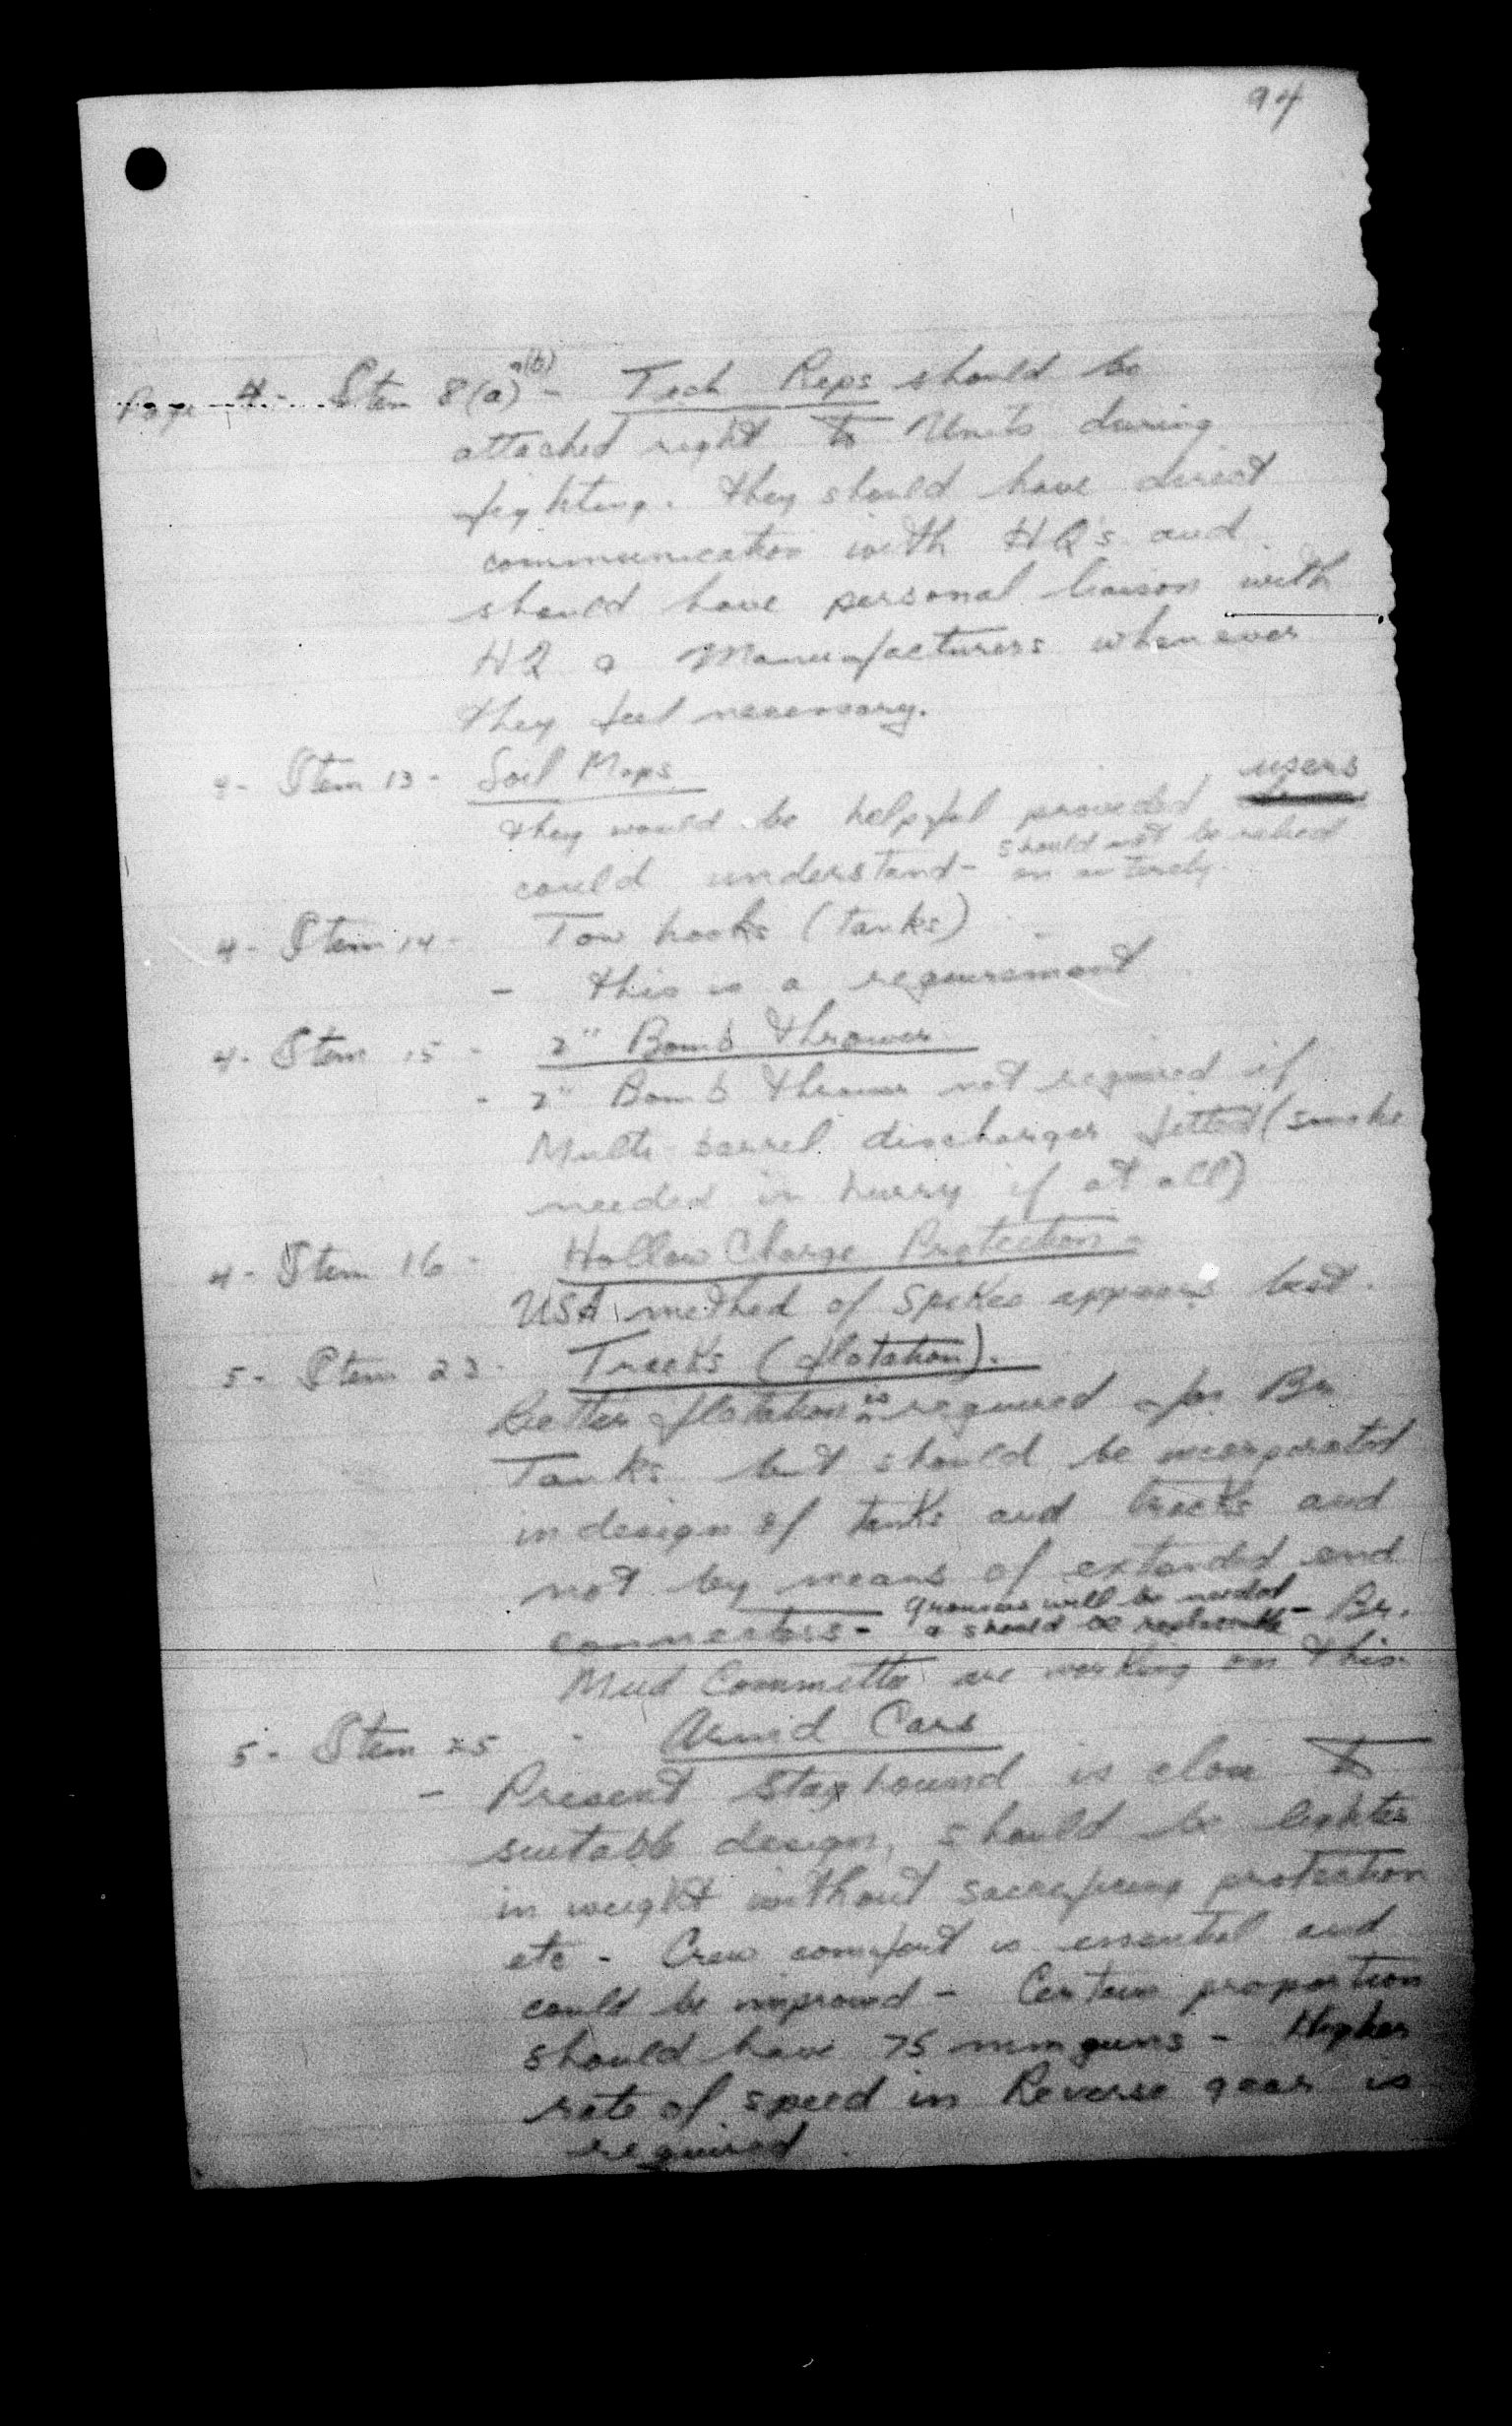 94
Page 4 - Item 8(a) & (b) - Tech Reps should be
attached right to Units during
fighting. They should have direct
communication with HQ's and
should have personal liaison with
HQ & Manufacturers whenever
they feel necessary.
Item 13 - Soil Maps
users
They would be helpful provided
could understand - should not be relied
on entirely.
4 - Item 14 - Tow hooks (tanks)
- this is a requirement
4 - Item 15 - 2" Bomb Thrower
- 2" Bomb Thrower not required if
Multi-barrel discharger fitted (smoke
needed in hurry if at all)
4 - Item 16 - Hollow Charge Protection -
USA method of Spikes appears best.
5 - Item 23 - Tracks (flotation).
Better flotation is required for Br
Tanks but should be incorporated
in design of tanks and tracks and
not by means of extended end
grousers will be needed
connectors - & should be replaceable - Br.
Mud Committee are working on this
5 - Item 25 - Armd Cars
- Present Staghound is close to
suitable design, should be lighter
in weight without sacrificing protection
etc - Crew comfort is essential and
could be improved - Certain proportion
should have 75 mm guns - Higher
rate of speed in Reverse gear is
required.